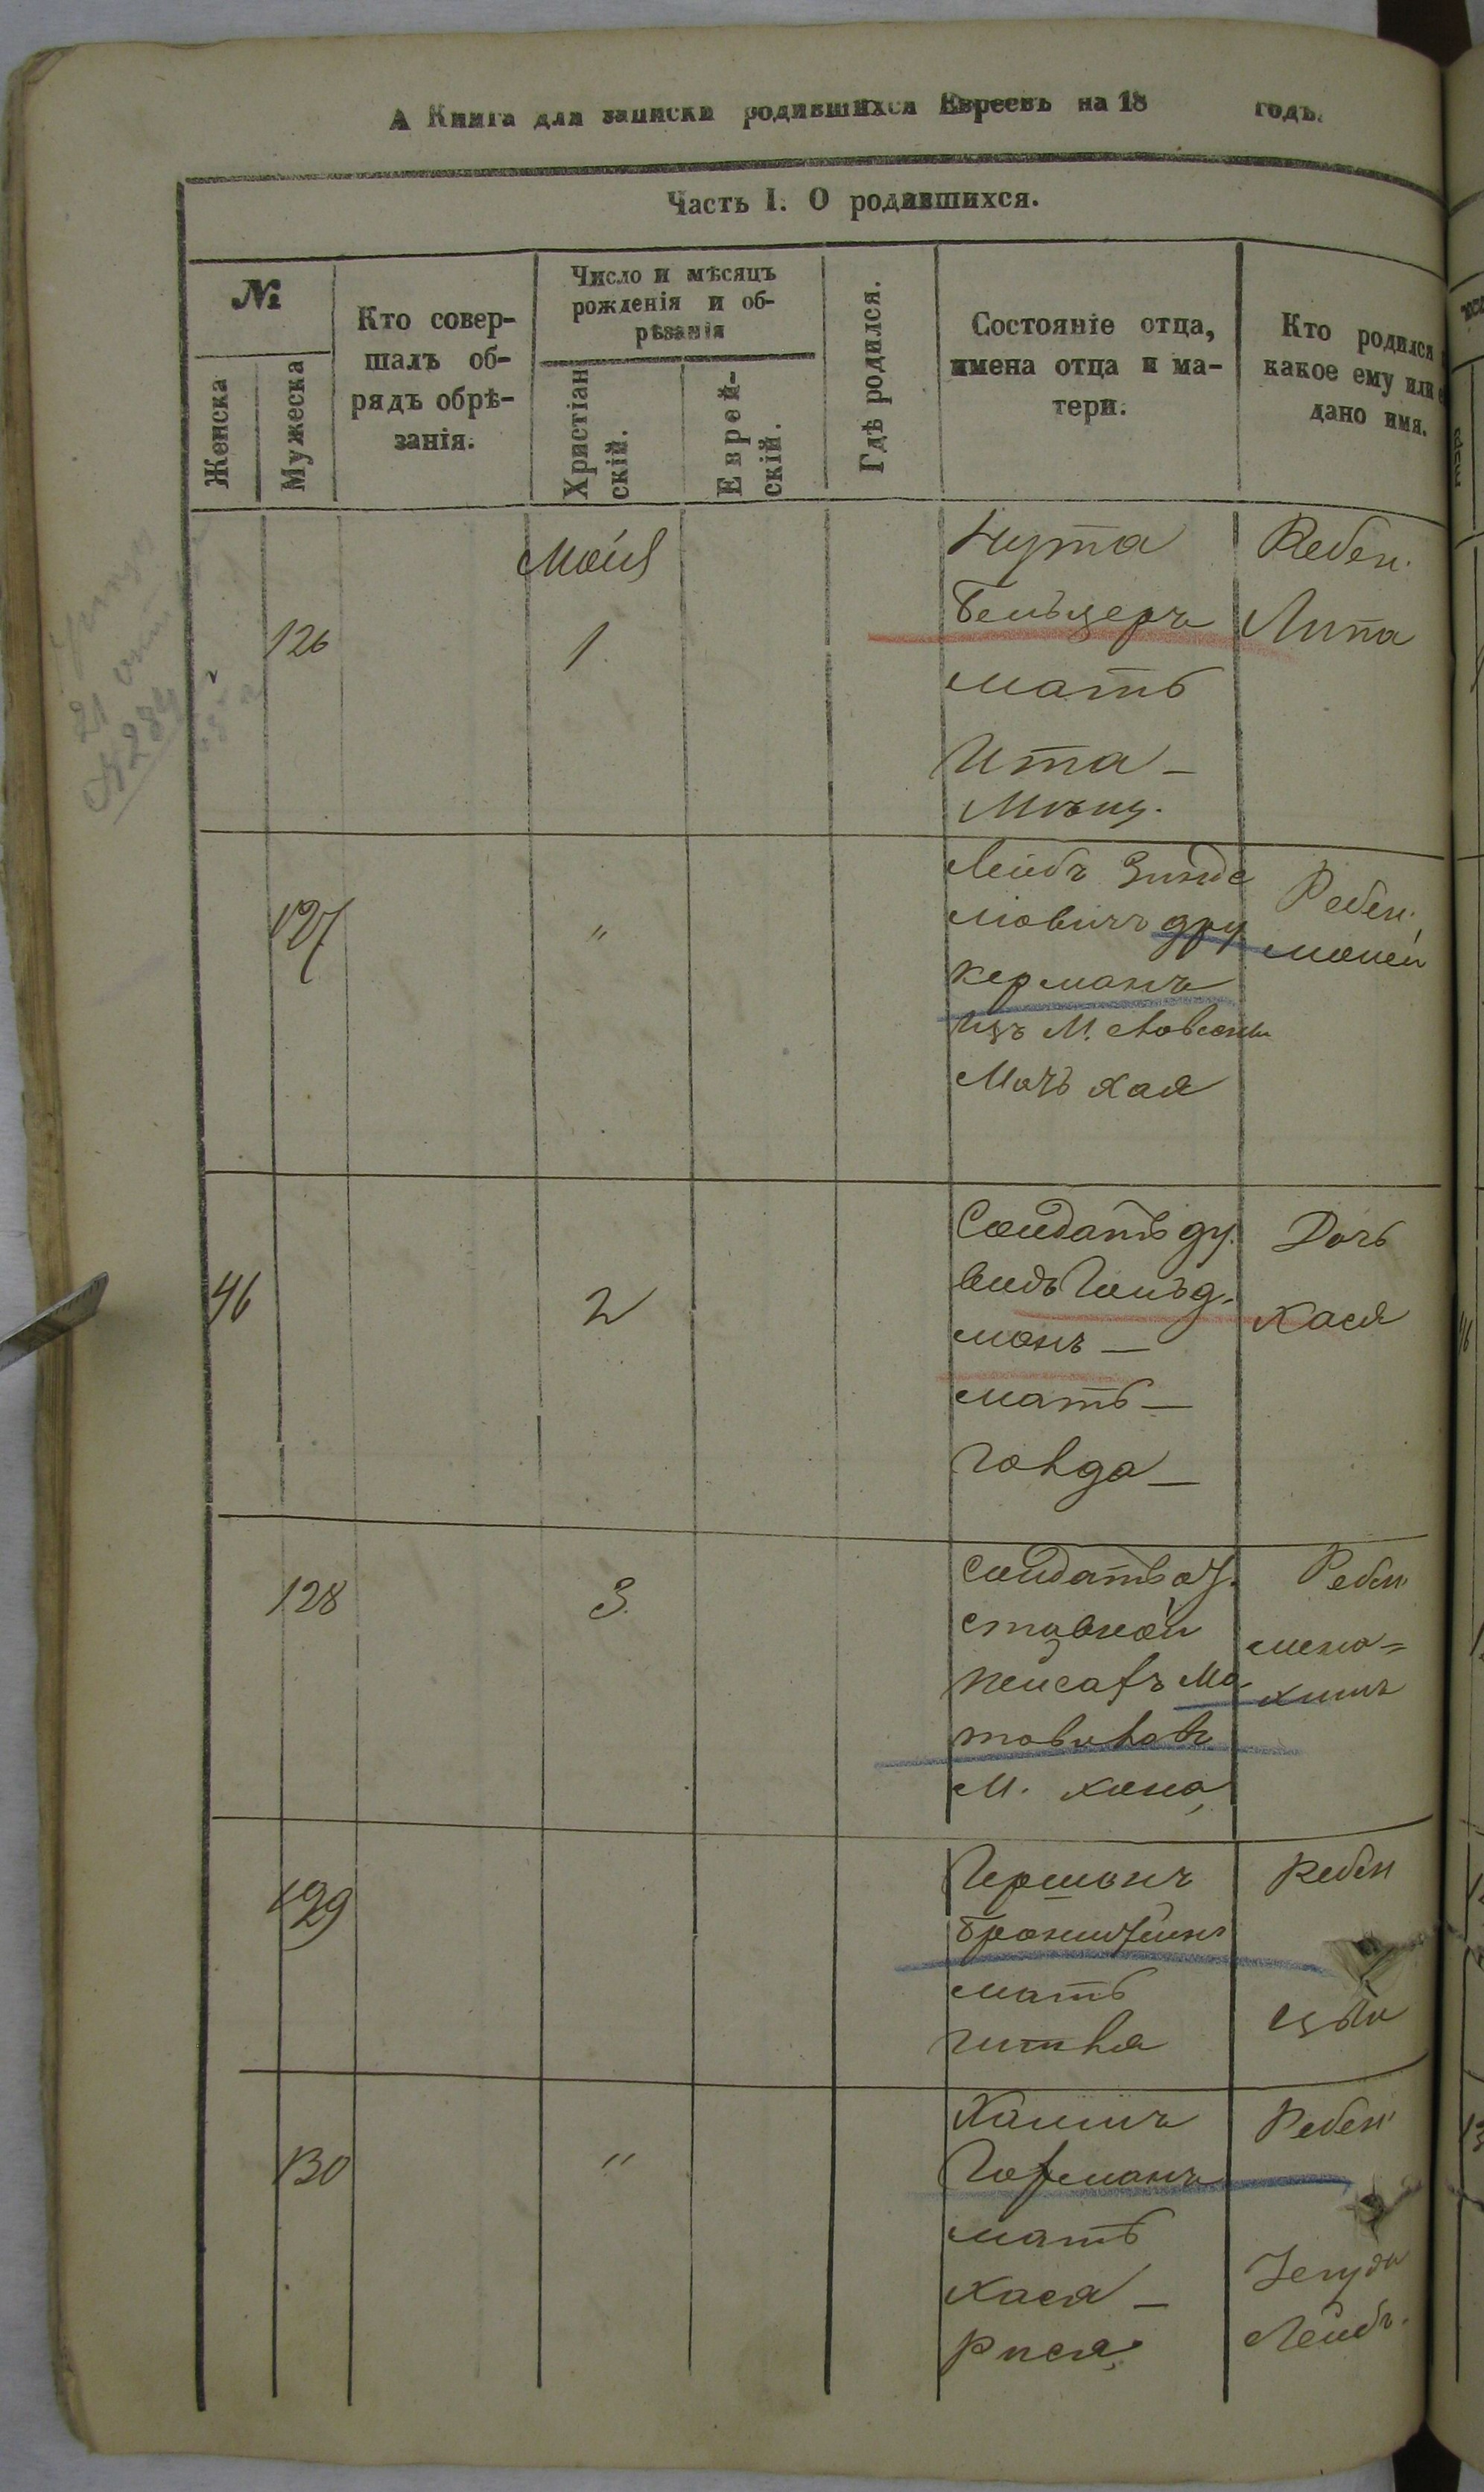 А Книга для записки родившихся Евреевъ на 18 годъ.
Часть I. О родившихся.
№
Женска
Мужеска
Кто совер-
шалъ об-
рядъ обрѣ-
занія.
Число и мѣсяцъ
рожденія и об-
рѣзанія
Христіан
скій.
Еврей-
скій.
Гдѣ родился.
Состояніе отца,
имена отца и ма-
тери.
Кто родился
какое ему или
дано имя.
126
Маія
1
Нута
Бельцеръ
мать
Ита —
Мѣщ.
Ребен.
Липа
127
"
Лейбъ
мовичъ Дру
керманъ
изъ М.
Мать Хая
Ребен.
46
2
Солдатъ Ду
видъ Гольд-
манъ —
мать —
Голда —
Дочь
Хася
128
3
Солдатъ от.
ставной
Пейсахъ Ма
М. Хана
Ребен
мена=
химъ
129
Гершонъ
Бронштейнъ
мать
Гитля
Ребен
130
"
Хаимъ
Гофманъ
мать
Хася —
Рися
Ребен
Іегуда
Лейбъ.